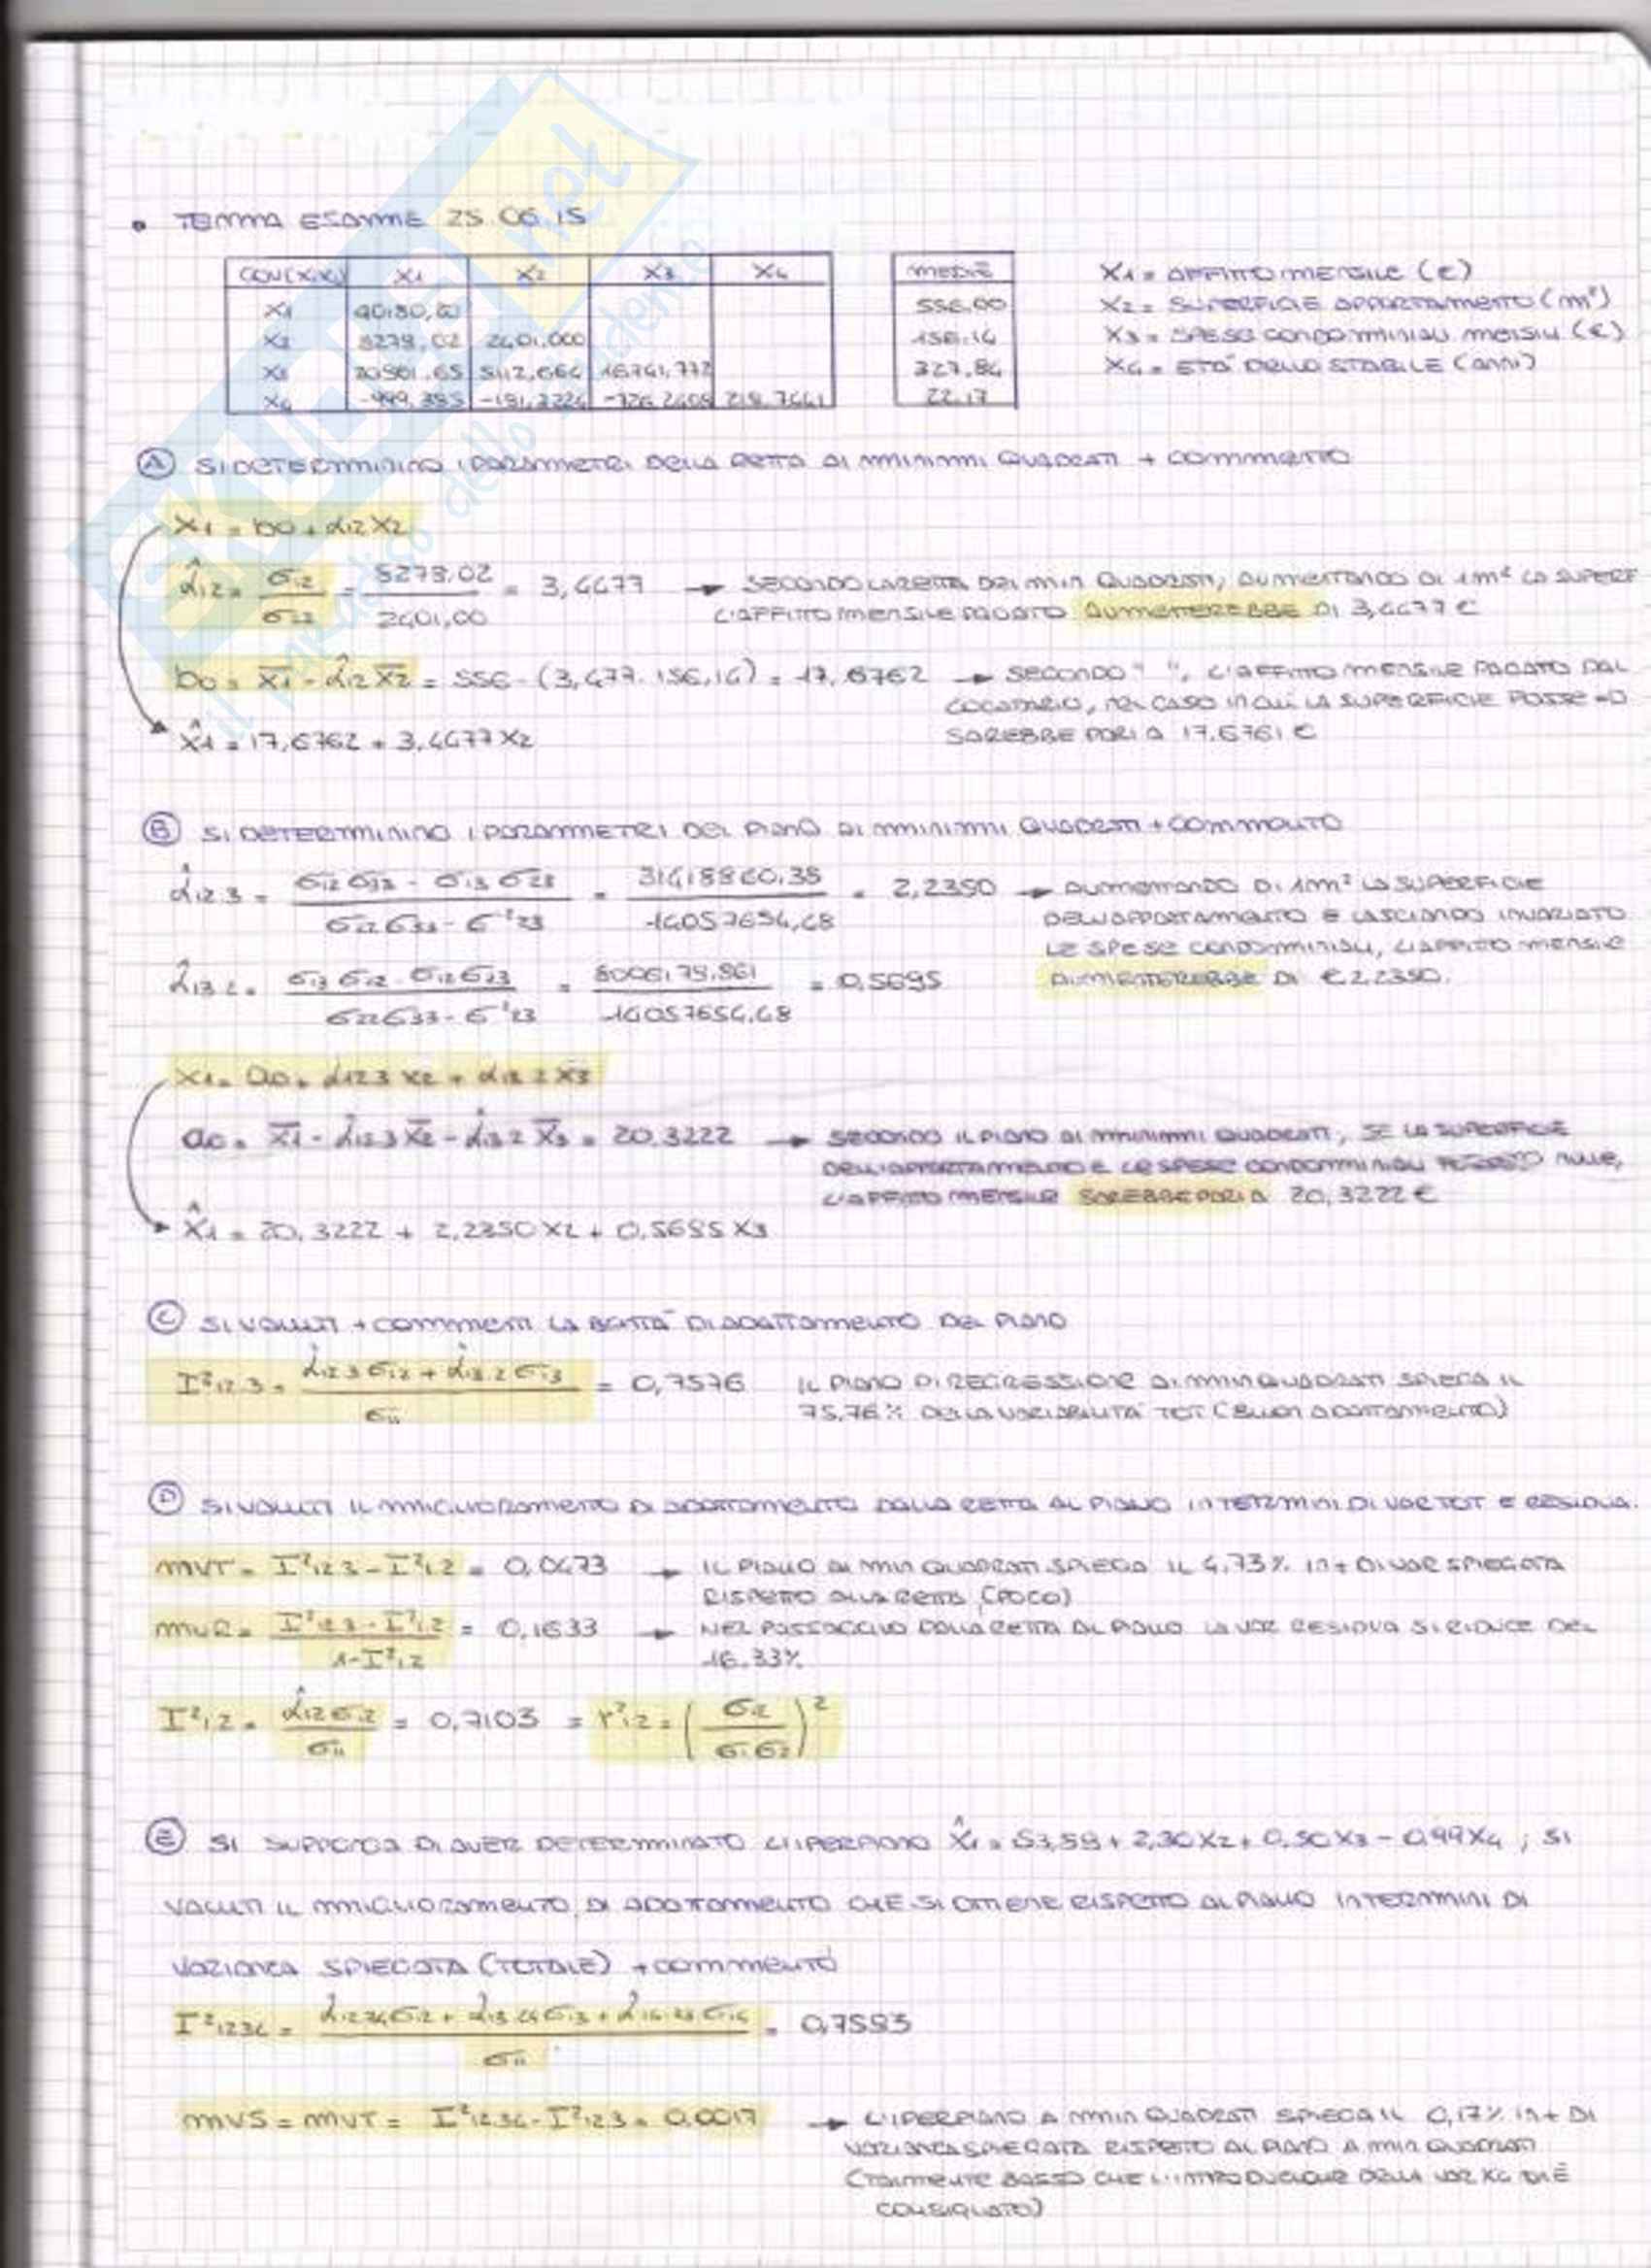 • TEMMA ESAMME 25.06.15
COV(Xi,Xj) X1 X2 X3 X4 MEDIE X1 = AFFITTO MENSILE (€)
X1 40180,00 556,00 X2 = SUPERFICIE APPARTAMENTO (m²)
X2 8278,02 2401,000 156,14 X3 = SPESE CONDOMMINIALI MENSILI (€)
X3 20501,65 5112,664 16741,772 327,84 X4 = ETÀ DELLO STABILE (anni)
X4 -999,385 -181,3224 -726,2408 218,7441 22,17
Ⓐ SI DETERMININO I PARAMMETRI DELLA RETTA DI MMINIMMI QUADRATI + COMMENTO
X1 = b0 + α12 X2
α̂12 = σ12/σ22 = 8278,02/2401,00 = 3,4477 → SECONDO LA RETTA DEI MIN QUADRATI, AUMENTANDO DI 1m² LA SUPERF
L'AFFITTO MENSILE PAGATO AUMENTEREBBE DI 3,4477 €
b0 = X̄1 - α̂12 X̄2 = 556 - (3,477 · 156,14) = 17,6762 → SECONDO " ", L'AFFITTO MENSILE PAGATO DAL
LOCATARIO, NEL CASO IN CUI LA SUPERFICIE FOSSE = 0
SAREBBE PARI A 17.6761 €
X̂1 = 17,6762 + 3,4477 X2
Ⓑ SI DETERMININO I PARAMMETRI DEL PIANO DI MMINIMMI QUADRATI + COMMENTO
α̂12.3 = (σ12 σ33 - σ13 σ23)/(σ22 σ33 - σ²23) = 31418860,38/14057654,68 = 2,2350 → AUMENTANDO DI 1m² LA SUPERFICIE
DELL'APPARTAMENTO E LASCIANDO INVARIATO
LE SPESE CONDOMMINIALI, L'AFFITTO MENSILE
α̂13.2 = (σ13 σ22 - σ12 σ23)/(σ22 σ33 - σ²23) = 8006179,861/14057654,68 = 0,5695 AUMENTEREBBE DI € 2,2350.
X1 = a0 + α12.3 X2 + α13.2 X3
a0 = X̄1 - α̂12.3 X̄2 - α̂13.2 X̄3 = 20,3222 → SECONDO IL PIANO DI MMINIMMI QUADRATI, SE LA SUPERFICIE
DELL'APPARTAMENTO E LE SPESE CONDOMMINIALI FOSSERO NULLE,
L'AFFITTO MENSILE SAREBBE PARI A 20,3222 €
X̂1 = 20,3222 + 2,2350 X2 + 0,5695 X3
Ⓒ SI VALUTI + COMMENTI LA BONTÀ DI ADATTAMENTO DEL PIANO
I²12.3 = (α̂12.3 σ12 + α̂13.2 σ13)/σ11 = 0,7576 IL PIANO DI REGRESSIONE DI MMIN QUADRATI SPIEGA IL
75,76% DELLA VARIABILITÀ TOT (BUON ADATTAMENTO)
Ⓓ SI VALUTI IL MMIGLIORAMENTO DI ADATTAMENTO DALLA RETTA AL PIANO IN TERMINI DI VAR TOT E RESIDUA.
MVT = I²12.3 - I²12 = 0,0473 → IL PIANO DI MIN QUADRATI SPIEGA IL 4,73% IN + DI VAR SPIEGATA
RISPETTO ALLA RETTA (POCO)
MVR = (I²12.3 - I²12)/(1 - I²12) = 0,1633 → NEL PASSAGGIO DALLA RETTA AL PIANO LA VAR RESIDUA SI RIDUCE DEL
16.33%
I²12 = α̂12 σ12/σ11 = 0,7103 = r²12 = (σ12/σ1 σ2)²
Ⓔ SI SUPPONGA DI AVER DETERMMINATO L'IPERPIANO X̂1 = 53,59 + 2,30 X2 + 0,50 X3 - 0,99 X4 ; SI
VALUTI IL MMIGLIORAMENTO DI ADATTAMENTO CHE SI OTTIENE RISPETTO AL PIANO IN TERMMINI DI
VARIANZA SPIEGATA (TOTALE) + COMMENTO
I²1234 = (α̂12.34 σ12 + α̂13.24 σ13 + α̂14.23 σ14)/σ11 = 0,7593
MVS = MVT = I²1234 - I²123 = 0.0017 → L'IPERPIANO A MMIN QUADRATI SPIEGA IL 0,17% IN + DI
VARIANZA SPIEGATA RISPETTO AL PIANO A MIN QUADRATI
(TALMENTE BASSO CHE L'INTRODUZIONE DELLA VAR X4
CONSIGLIATO)
SKUOLA.net
il paradiso dello studente